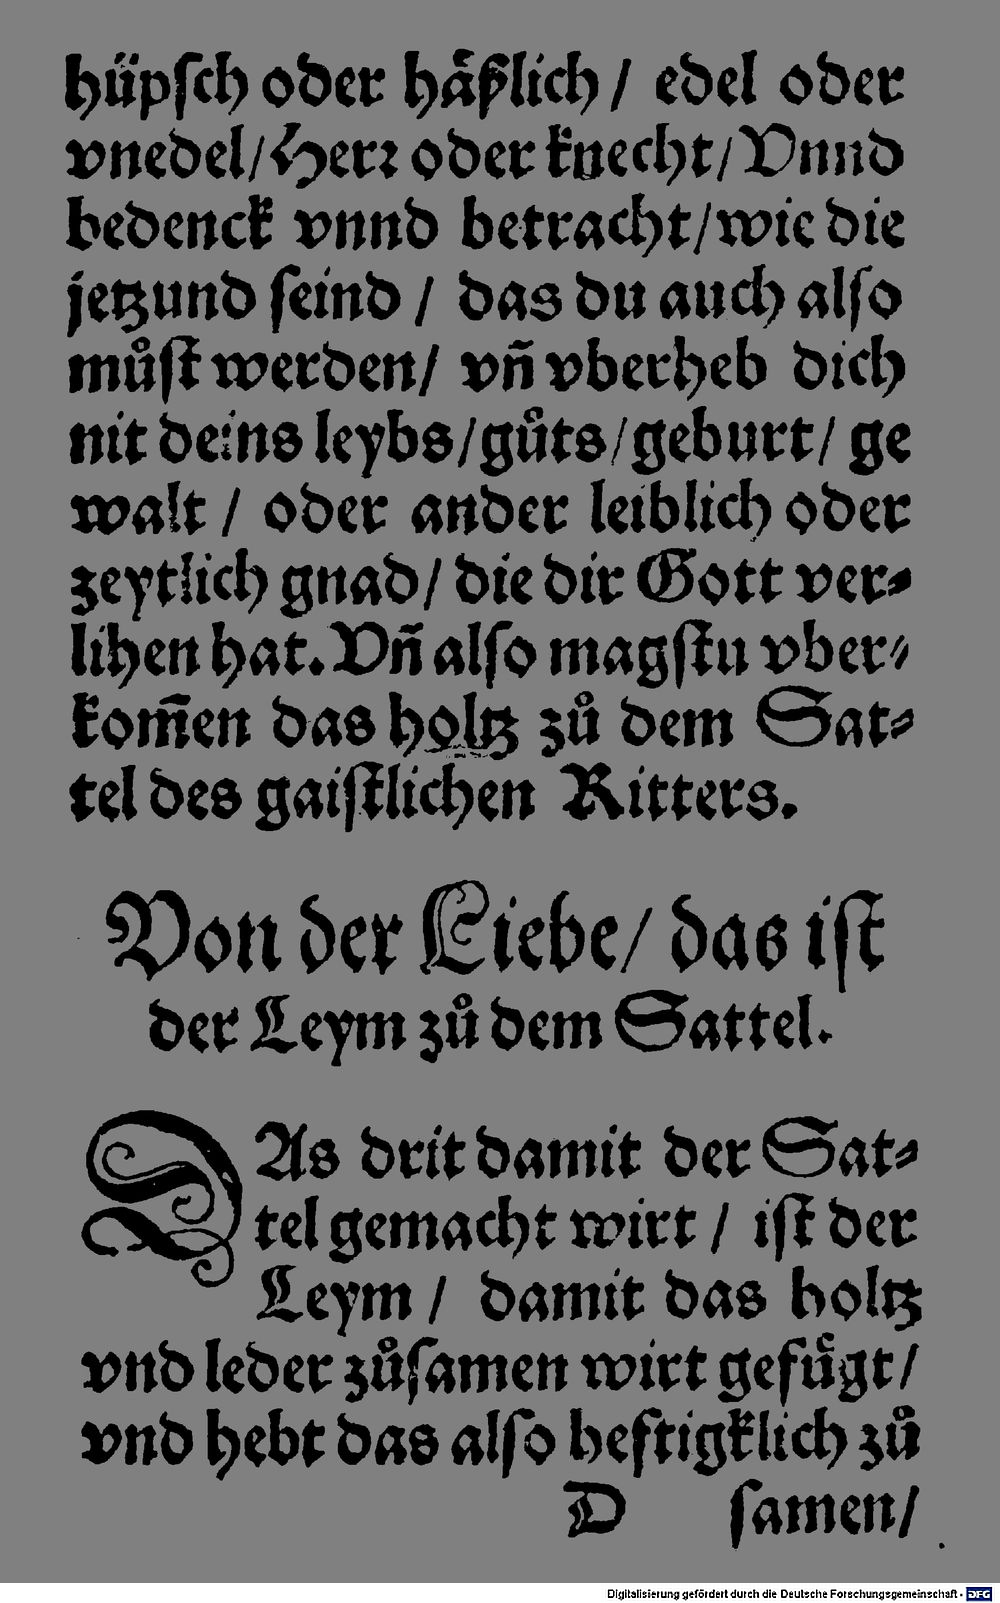 hüpſch oder haͤßlich / edel oder
vnedel / Herꝛ oder knecht / Vnnd
bedenck vnnd betracht / wie die
jetzund ſeind / das du auch alſo
muͦſt werden / vñ vberheb dich
nit deins leybs / guͦts / geburt / ge
walt / oder ander leiblich oder
zeytlich gnad / die dir Gott ver⸗
lihen hat. Vñ alſo magſtu vber⸗
kom̃en das holtz zuͦ dem Sat⸗
tel des gaiſtlichen Ritters.
Von der Liebe / das iſt
der Leym zuͦ dem Sattel.
DAs drit damit der Sat⸗
tel gemacht wirt / iſt der
Leym / damit das holtz
vnd leder zuͦſamen wirt gefuͤgt /
vnd hebt das alſo heftigklich zuͦ
D ſamen /
Digitalisierung gefördert durch die Deutsche Forschungsgemeinschaft - DFG